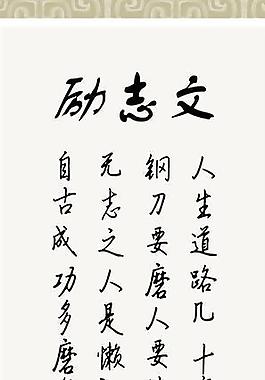 励志文
人生道路几十
钢刀要磨人要
无志之人是懒
自古成功多磨